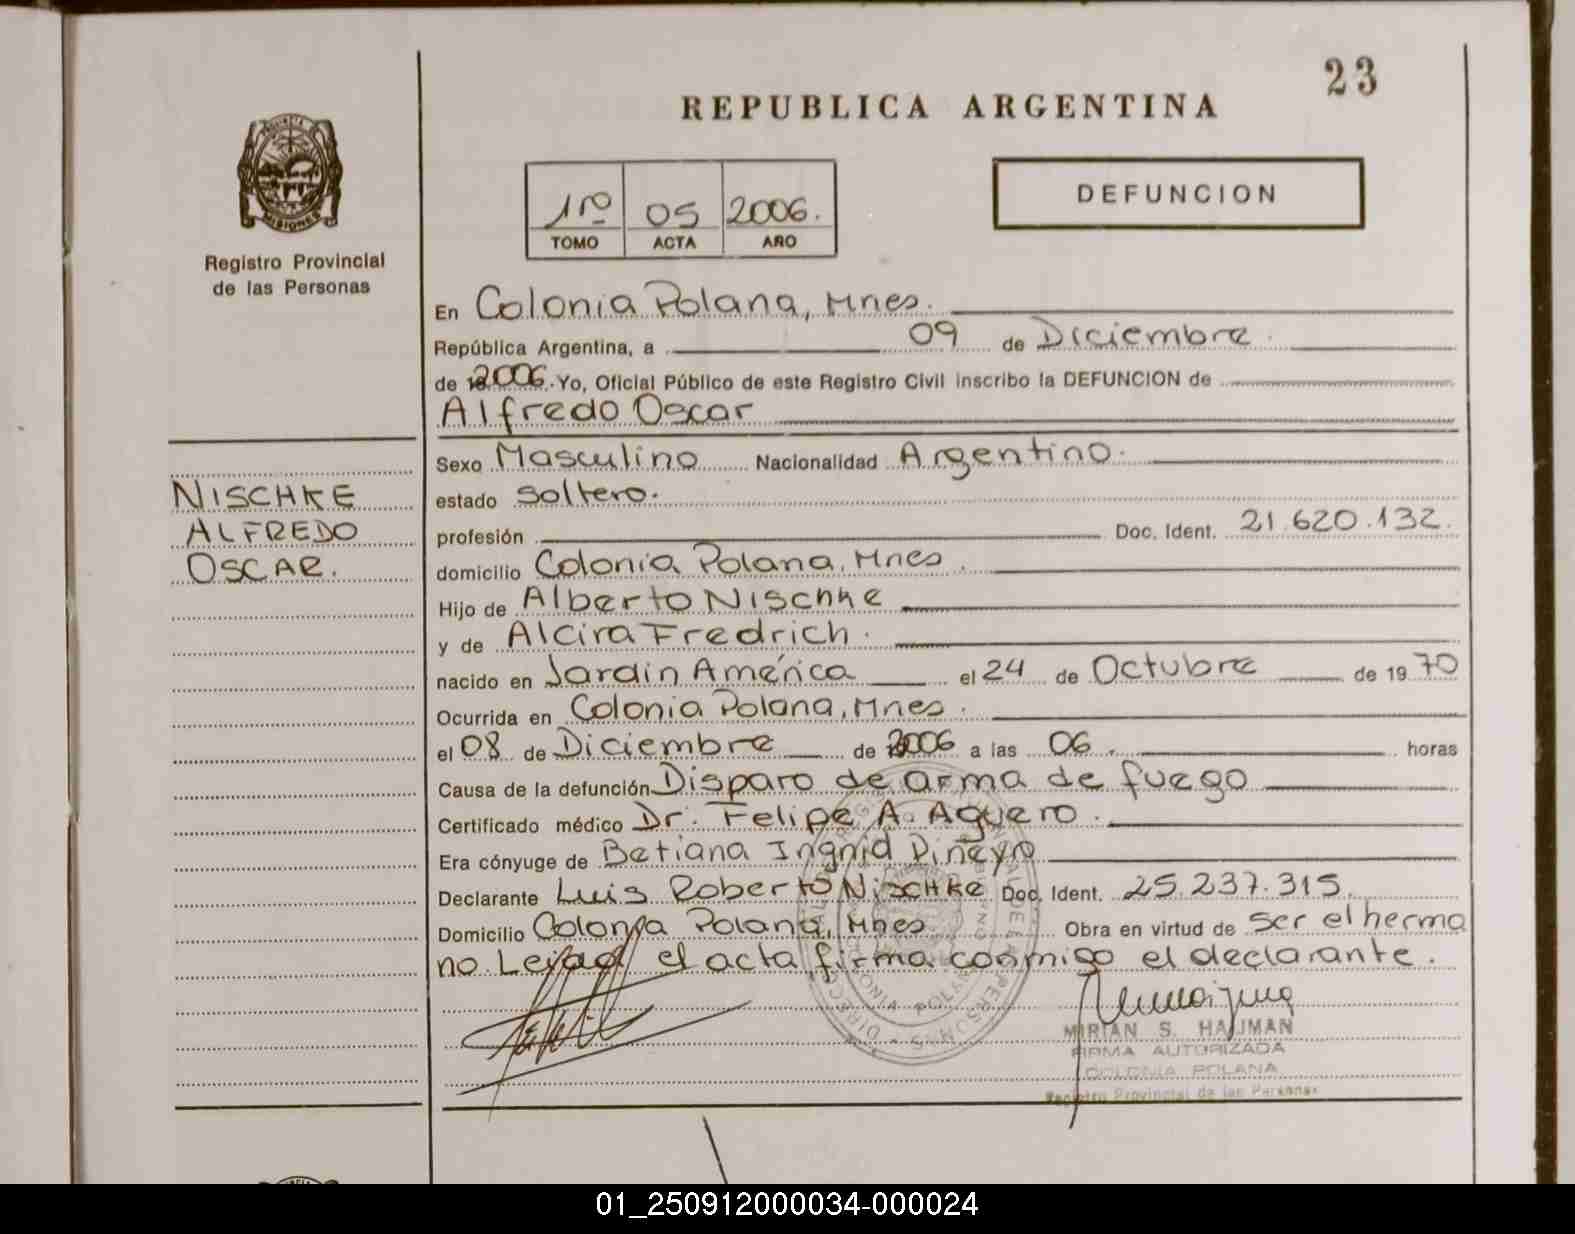 23
REPUBLICA ARGENTINA
PROVINCIA DE MISIONES
Registro Provincial
de las Personas
1ro 05 2006.
TOMO ACTA AÑO
DEFUNCION
En Colonia Polana, Mnes.
República Argentina, a 09 de Diciembre.
de 2006. Yo, Oficial Público de este Registro Civil inscribo la DEFUNCION de
Alfredo Oscar
NISCHKE
ALFREDO
OSCAR.
Sexo Masculino Nacionalidad Argentino.
estado Soltero.
profesión Doc. Ident. 21.620.132.
domicilio Colonia Polana, Mnes.
Hijo de Alberto Nischke
y de Alcira Fredrich.
nacido en Jardin América el 24 de Octubre de 1970
Ocurrida en Colonia Polana, Mnes.
el 08 de Diciembre de 2006 a las 06. horas
Causa de la defunción Disparo de arma de fuego
Certificado médico Dr. Felipe A. Aguero.
Era cónyuge de Betiana Ingrid Piñeyro
Declarante Luis Roberto Nischke Doc. Ident. 25.237.315.
Domicilio Colonia Polana, Mnes Obra en virtud de ser el herma
no. Leída el acta, firma conmigo el declarante.
MIRIAN S. HAUMAN
FIRMA AUTORIZADA
COLONIA POLANA
Registro Provincial de las Personas
01_250912000034-000024